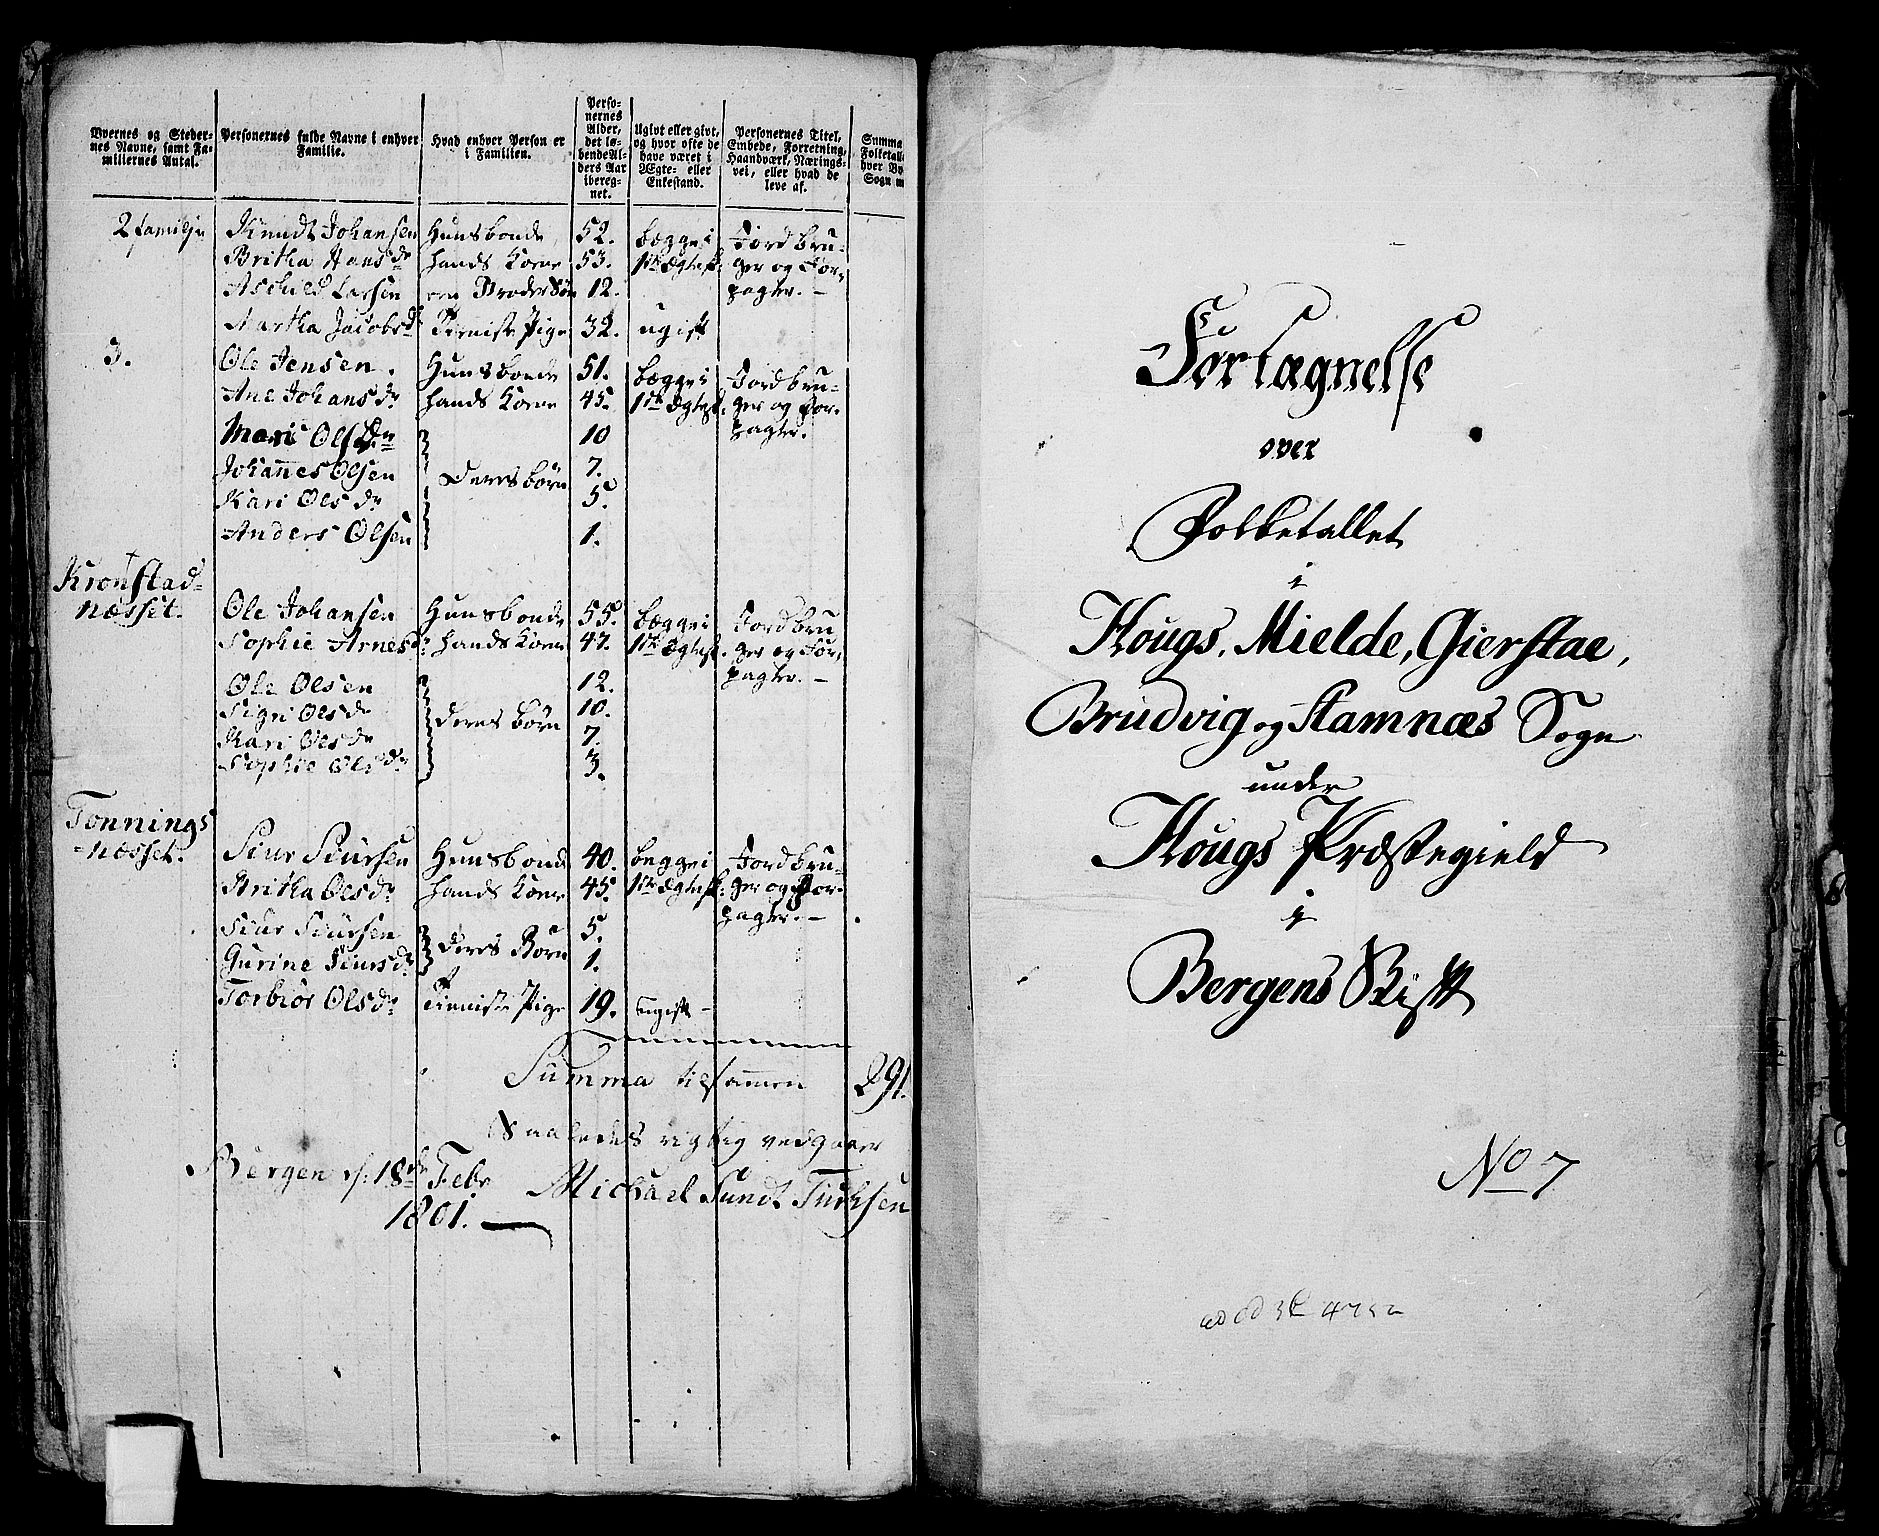 Byernes og Steder-
nes Navne, samt Fa-
miliernes Antal.
Personernes fulde Navne i enhver
Familie.
Hvad enhver Person er
i Familien.
Perso-
nernes
Alder,
det lø-
bende Al-
ders Aar
ibereg-
net.
Ugivt eller givt,
og hvor ofte de
have været i
Ægte- eller
Enkestand.
Personernes Titel,
Embede, Forretning,
Haandværk, Nærings-
vei, eller hvad de
leve af.
Summa
Folketall
hver By
Sogn
2 familie Knudt Johansen Huusbonde 52. begge i Jordbru-
Britha Hansdr hands Kone 53. 1ste Ægtesk: ger og For-
Aschild Larsen en Brodersøn 12. pagter. –
Martha Jacobsdr Tieniste Pige 32. ugift
3. Ole Jensen. Huusbonde 51. begge i Jordbru-
Ane Johansdr hands Kone 45. 1ste Ægtesk: ger og For-
Mari Olsdr 10 pagter.
Johannes Olsen Deres børn 7.
Kari Olsdr 5.
Anders Olsen 1.
Kronstad-
næsset. Ole Johansen Huusbonde 55. begge i Jordbru
Sophie Arnesdr hands Kone 47. 1ste Ægtesk. ger og For-
Ole Olsen 12. pagter. –
Sigri Olsdr deres børn 10.
Kari Olsdr 7.
Sophie Olsdr 3.
Tonnings
-næsset. Siur Siursen Huusbonde 40. begge i Jordbru-
Britha Olsdr hands Kone 45. 1ste Ægtesk: ger og For-
pagter. –
Siur Siursen deres Børn 5.
Gurine Siursdr 1.
Torbiør Olsdr Tieniste Pige 19. ugift –
Summa tilsamen 291.
Saaledes rigtig vedgaaer
Bergen d: 18de Febr
1801. Michael Sundt Tuchsen
Fortægnelse
over
Folketallet
i
Hougs, Mielde, Gierstae,
Brudvig og Stamnæs Sogn
under
Hougs Præstegield
i
Bergens Stift
No 7